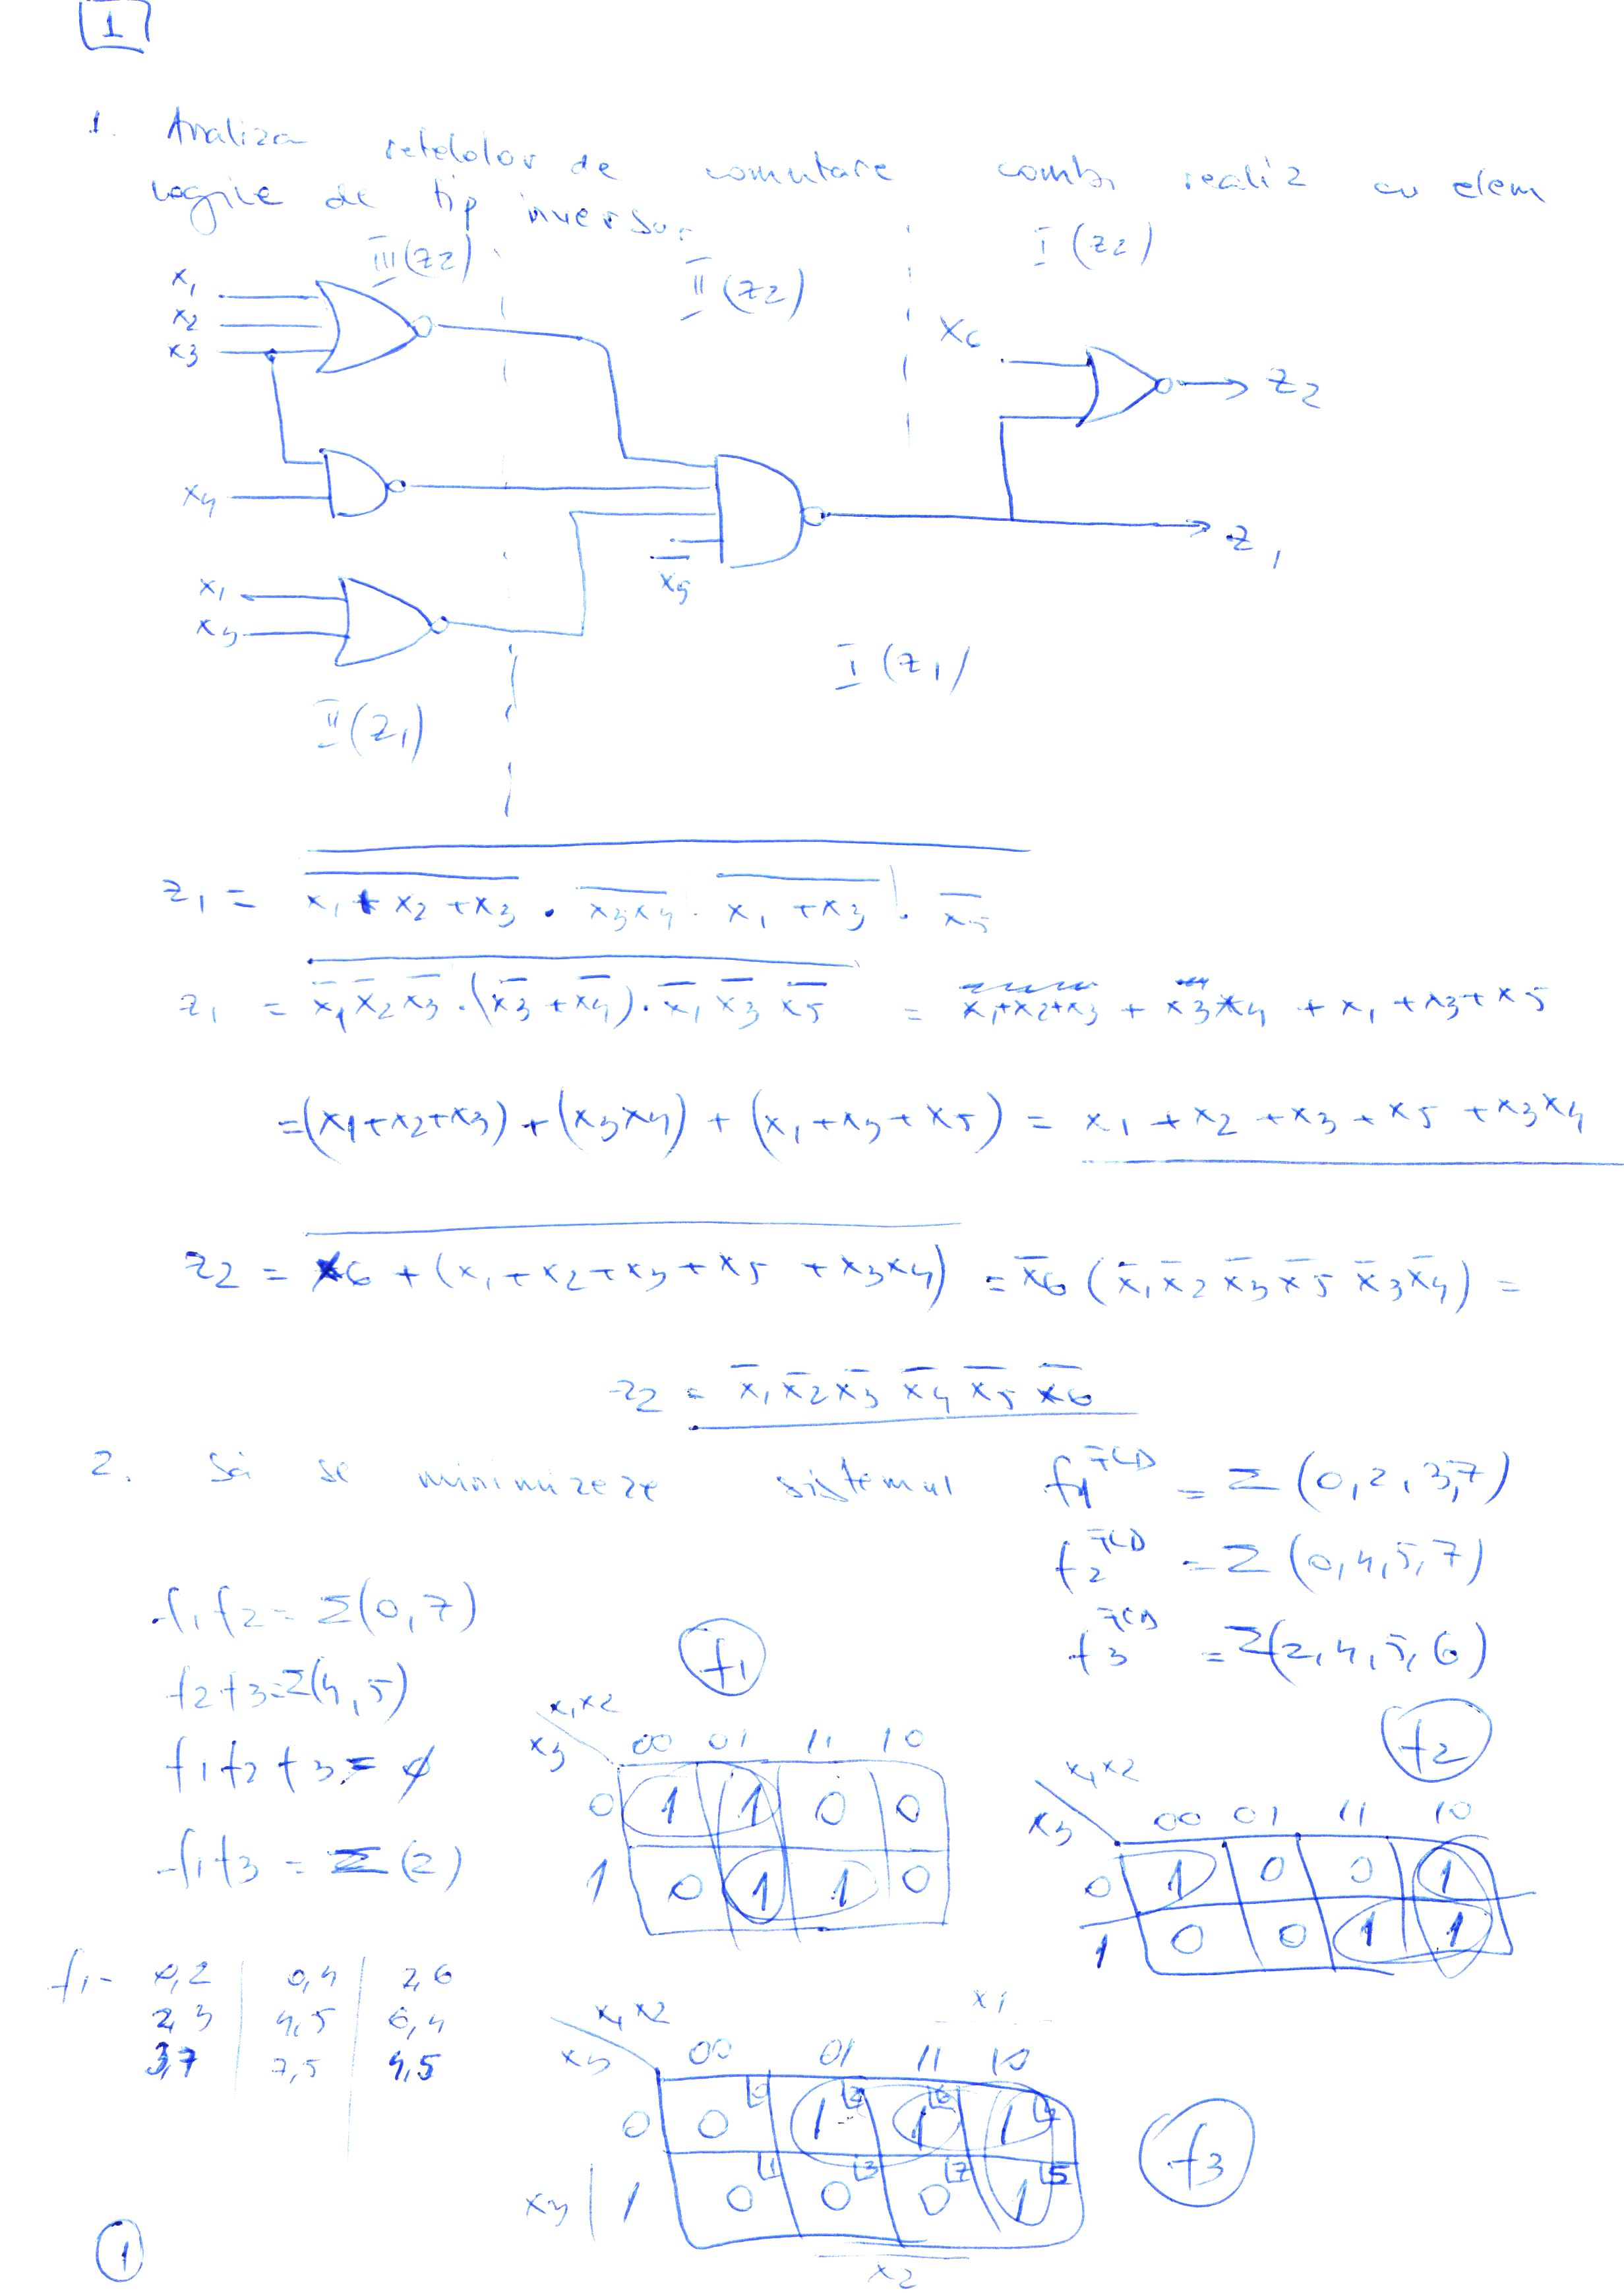 1
1. Analiza retelelor de comutare comb. realiz cu elem
logice de tip inversor
III (z2)
II (z2)
I (z2)
x1
x2
x3
x6
z2
x4
x̅5
z1
x1
x3
I (z1)
II (z1)
z1 = \overline{\overline{x1 + x2 + x3} · \overline{x3x4} · \overline{x1 + x3} · x̅5}
z1 = \overline{x̅1 x̅2 x̅3 · (x̅3 + x̅4) · x̅1 x̅3 x̅5} = x1+x2+x3 + x3x4 + x1 + x3 + x5
= (x1+x2+x3) + (x3x4) + (x1 + x3 + x5) = x1 + x2 + x3 + x5 + x3x4
z2 = \overline{x6 + (x1 + x2 + x3 + x5 + x3x4)} = x̅6 (x̅1 x̅2 x̅3 x̅5 x̅3 x̅4) =
z2 = x̅1 x̅2 x̅3 x̅4 x̅5 x̅6
2. Să se minimizeze sistemul f1^FCD = Σ (0, 2, 3, 7)
f2^FCD = Σ (0, 4, 5, 7)
f3^FCD = Σ(2, 4, 5, 6)
f1f2 = Σ(0, 7)
f2f3 = Σ(4, 5)
f1f2f3 = ∅
f1f3 = Σ(2)
f1
x1x2
x3
00 01 11 10
0 1 1 0 0
1 0 1 1 0
f2
x1x2
x3
00 01 11 10
0 1 0 0 1
1 0 0 1 1
f1- 0,2 | 0,4 | 2,6
2,3 | 4,5 | 6,4
3,7 | 7,5 | 4,5
x1
x1x2
x3
00 01 11 10
0 0 0 1 2 1 6 1 4
x3 1 0 1 0 3 0 7 1 5
x2
f3
1